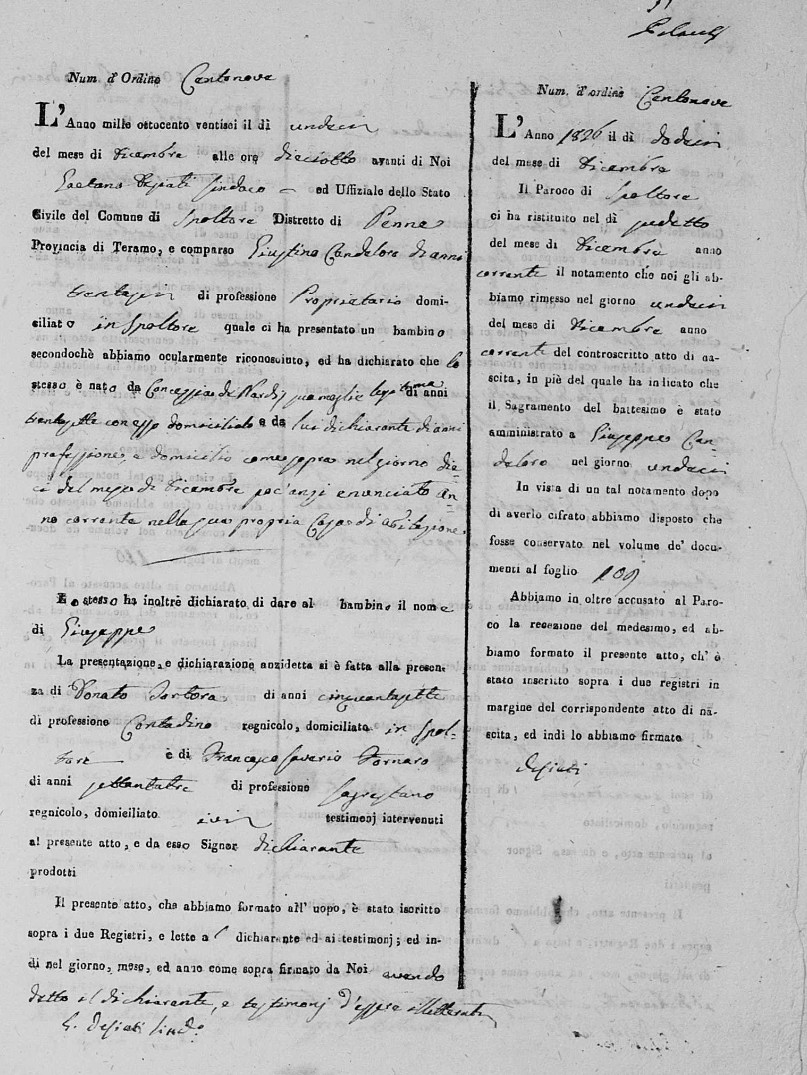 Num. d'Ordine Centonove
L'Anno mille ottocento ventisei il dì undeci
del mese di Dicembre alle ore dieciotto avanti di Noi
Gaetano Desiati Sindaco ed Uffiziale dello Stato
Civile del Comune di Spoltore Distretto di Penne
Provincia di Teramo, e comparso Giustino Candeloro di anni
trentasei di professione Proprietario domi-
siliato in Spoltore quale ci ha presentato un bambino
secondochè abbiamo ocularmente riconosciuto, ed ha dichiarato che lo
stesso è nato da Concezzia de Nardis sua moglie legitima di anni
trentasette con esso domiciliata e da lui dichiarante di anni
professione, e domicilio come sopra nel giorno die-
ci del mese di Dicembre poc'anzi enunciato an-
no corrente nella sua propria Casa di abitazione
Lo stesso ha inoltre dichiarato di dare al bambino il nome
di Giuseppe
La presentazione, e dichiarazione anzidetta si è fatta alla presen-
za di Donato Sartora di anni cinquantasette
di professione Contadino regnicolo, domiciliato in Spol-
tore è di Francesco Saverio Fornaro
di anni settantatre di professione Sagrestano
regnicolo, domiciliato ivi testimonj intervenuti
al presente atto, e da esso Signor dichiarante
prodotti
Il presente atto, che abbiamo formato all' uopo, è stato iscritto
sopra i due Registri, e letto a l dichiarante ed ai testimonj; ed in-
di nel giorno, mese, ed anno come sopra firmato da Noi avendo
detto il dichiarante, e testimonj d'essere illetterati
G. Desiati Sind.o
Num. d'ordine Centonove
L'Anno 1826 il dì dodeci
del mese di Dicembre
Il Paroco di Spoltore
ci ha ristituito nel dì sudetto
del mese di Dicembre anno
corrente il notamento che noi gli ab-
biamo rimesso nel giorno undeci
del mese di Dicembre anno
corrente del controscritto atto di na-
scita, in piè del quale ha indicato che
il Sagramento del battesimo è stato
amministrato a Giuseppe Can-
deloro nel giorno undeci
In vista di un tal notamento dopo
di averlo cifrato abbiamo disposto che
fosse conservato nel volume de' docu-
menti al foglio 109
Abbiamo in oltre accusato al Paro-
co la recezione del medesimo, ed ab-
biamo formato il presente atto, ch' è
stato inscritto sopra i due registri in
margine del corrispondente atto di na-
scita, ed indi lo abbiamo firmato
Desiati